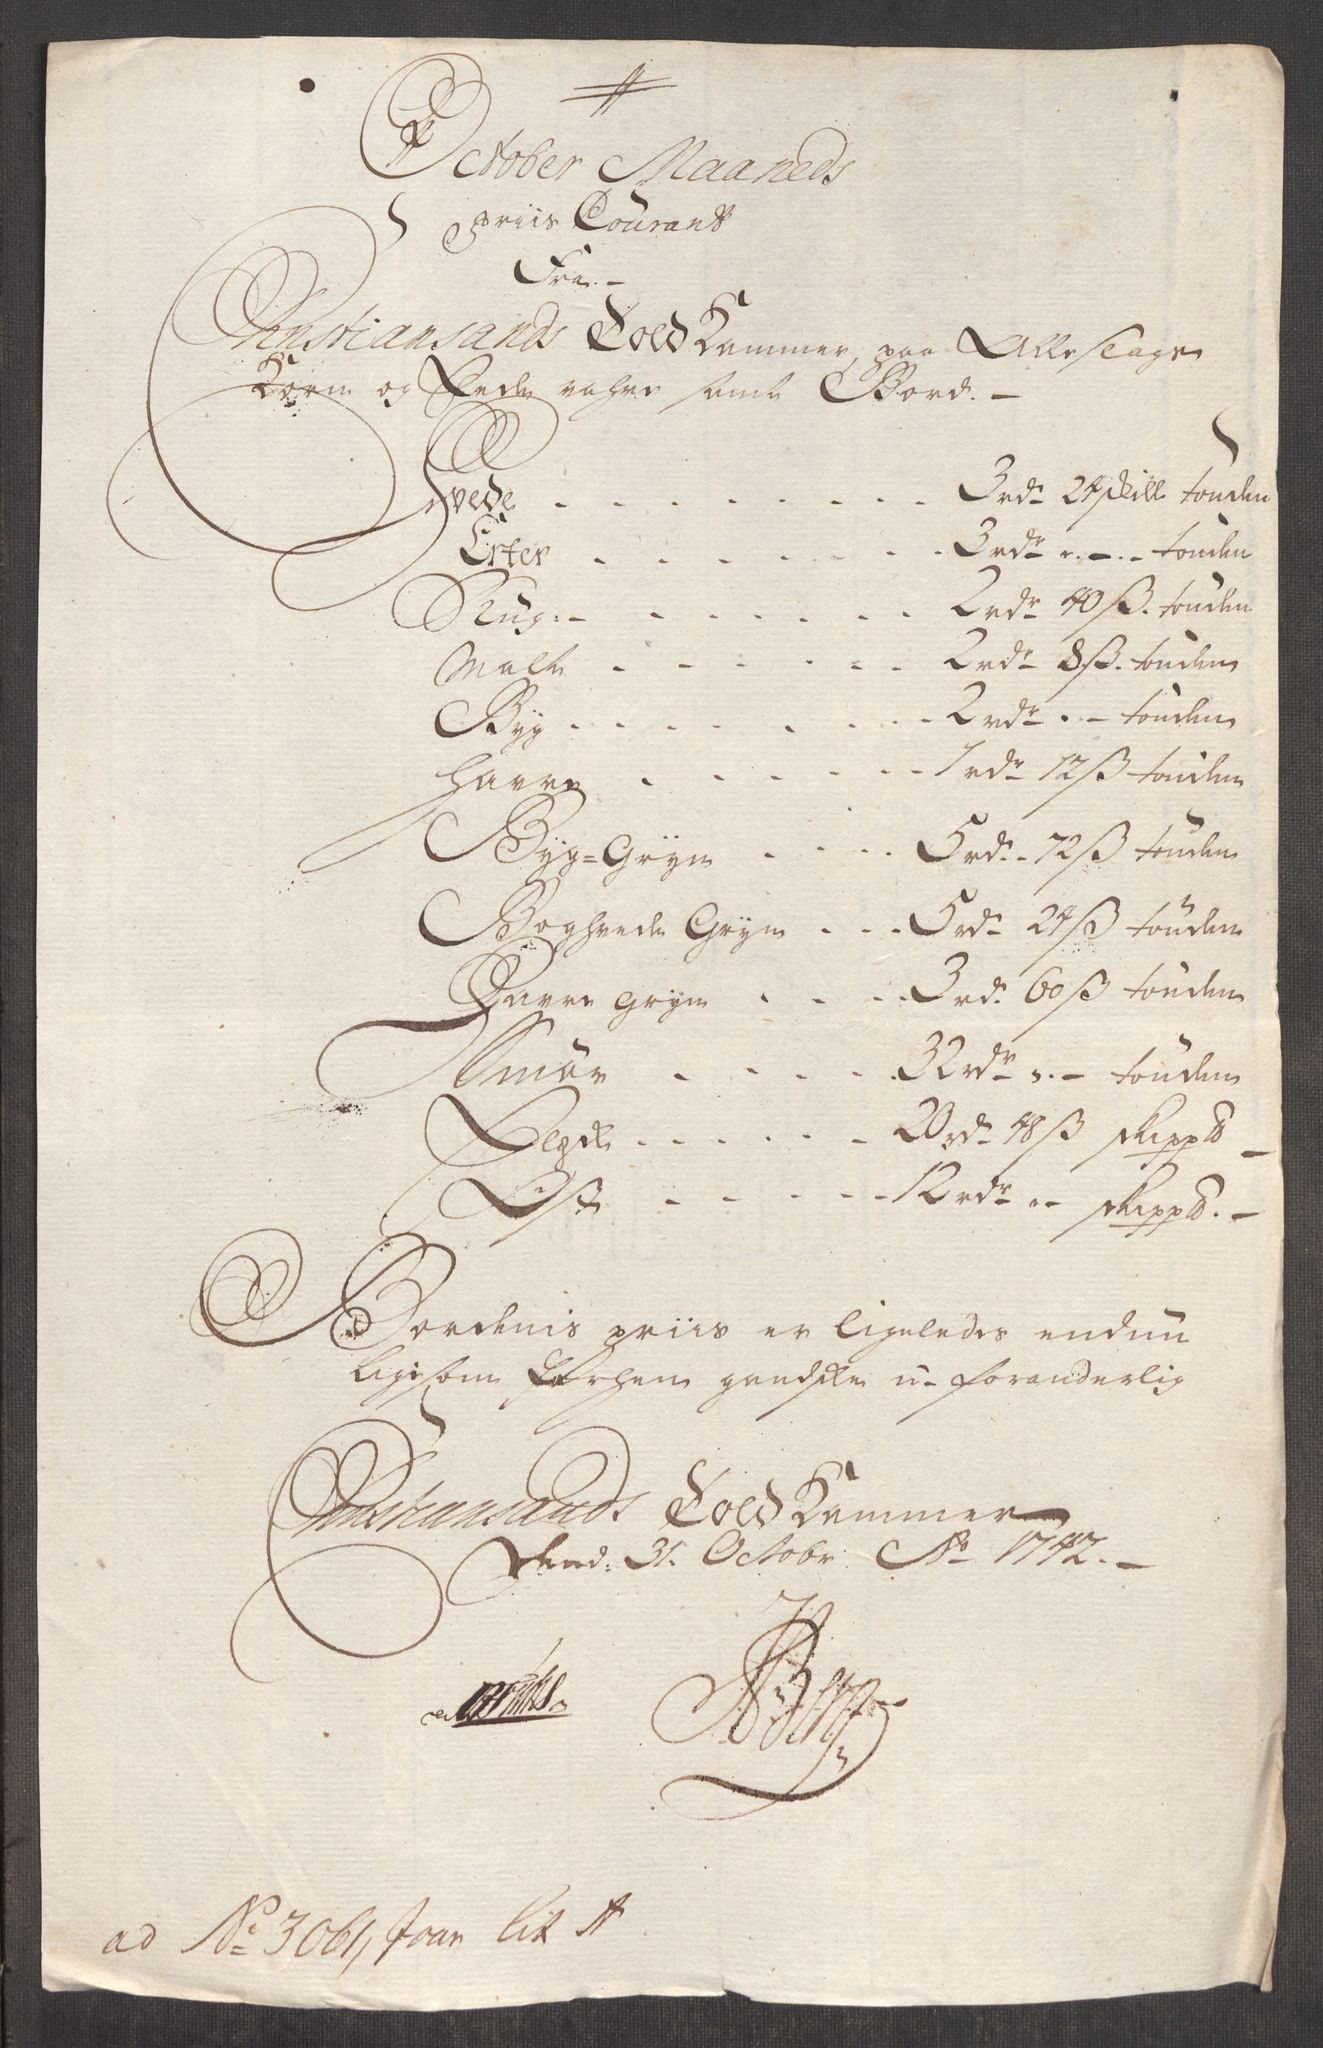 October Maaneds
priis Courant
Fra
Christiansands Told Kammer, paa Alle slags
Korn og Fede vahre samt Bord. -
Hvede 3 rdr 24 skill tønden
Erter 3 rdr - tønden
Rug 2 rdr 40 ß. tønden
Malt 2 rdr 8 ß. tønden
Byg 2 rdr - tønden
Havre 1 rdr 12 ß tønden
Byg=Gryn 5 rd. 72 ß tønden
Boghvede Gryn 5 rdr 24 ß tønden
Havre gryn 3 rd. 60 ß tønden
Smør 32 rdr - tønden
Flesk 20 rdr 48 ß skipp℔ -
Ost 12 rdr - skipp℔. -
Bordenis priis er ligeledes endnu
ligesom forhen gandske u-foranderlig
Christiansands Told Kammer
Dend: 31. Octobr Ao 1742. -
ad No: 3061, Lit A